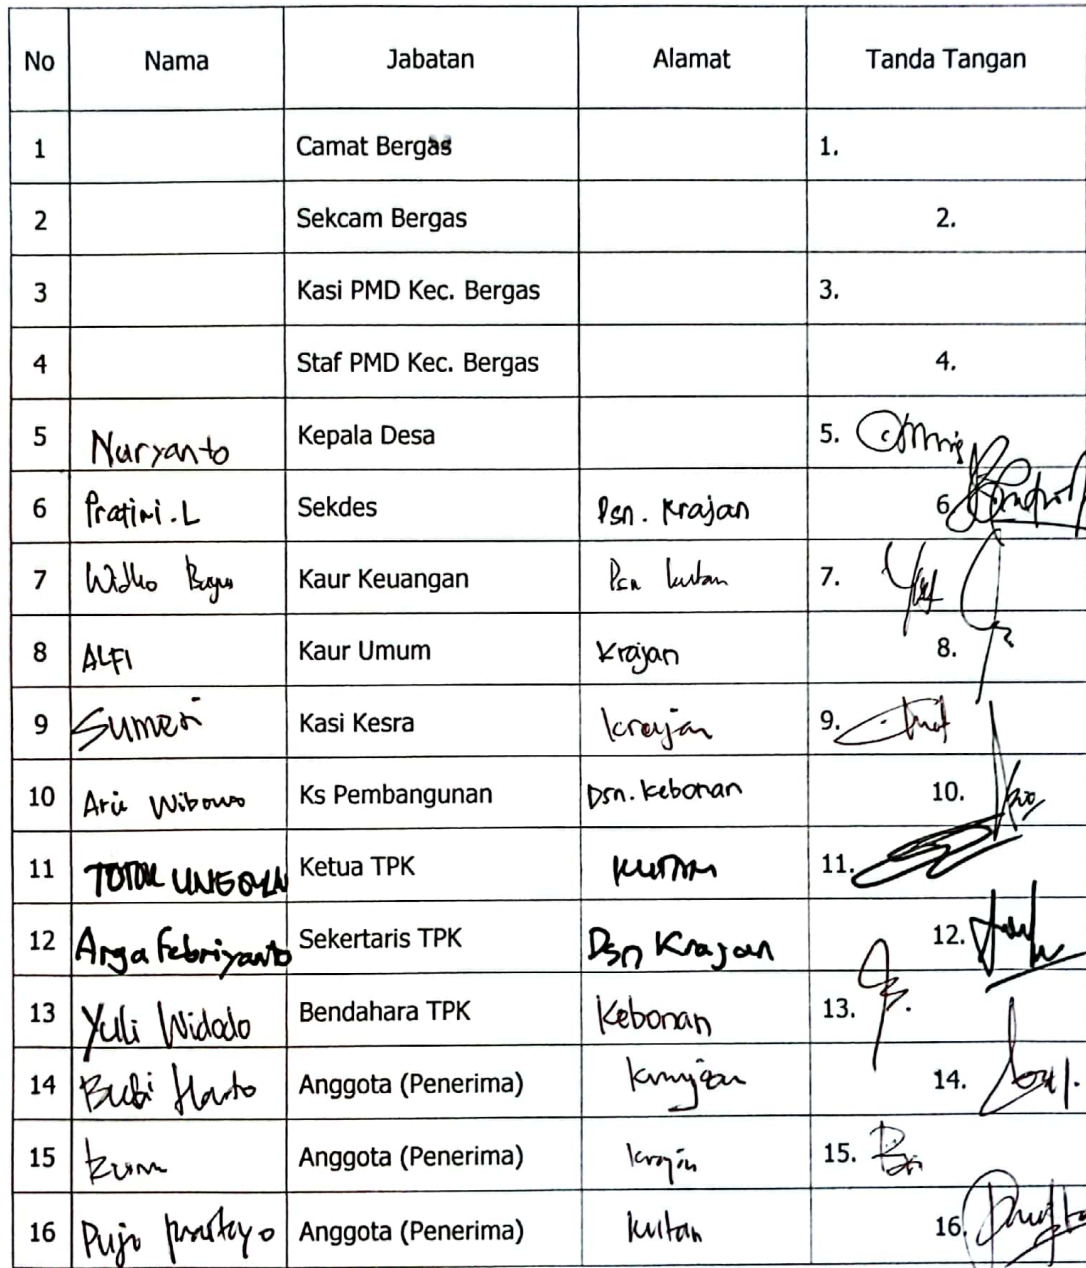 No Nama Jabatan Alamat Tanda Tangan
1 Camat Bergas 1.
2 Sekcam Bergas 2.
3 Kasi PMD Kec. Bergas 3.
4 Staf PMD Kec. Bergas 4.
5 Nuryanto Kepala Desa 5.
6 Pratini.L Sekdes Dsn. Krajan 6.
7 Kaur Keuangan Dsn 7.
8 ALFI Kaur Umum Krajan 8.
9 Sumeri Kasi Kesra krajan 9.
10 Arie Wibowo Ks Pembangunan Dsn. Kebonan 10.
11 Ketua TPK 11.
12 Arga Febriyanto Sekertaris TPK Dsn Krajan 12.
13 Yuli Widodo Bendahara TPK Kebonan 13.
14 Anggota (Penerima) 14.
15 Anggota (Penerima) krajan 15.
16 Anggota (Penerima) kultan 16.